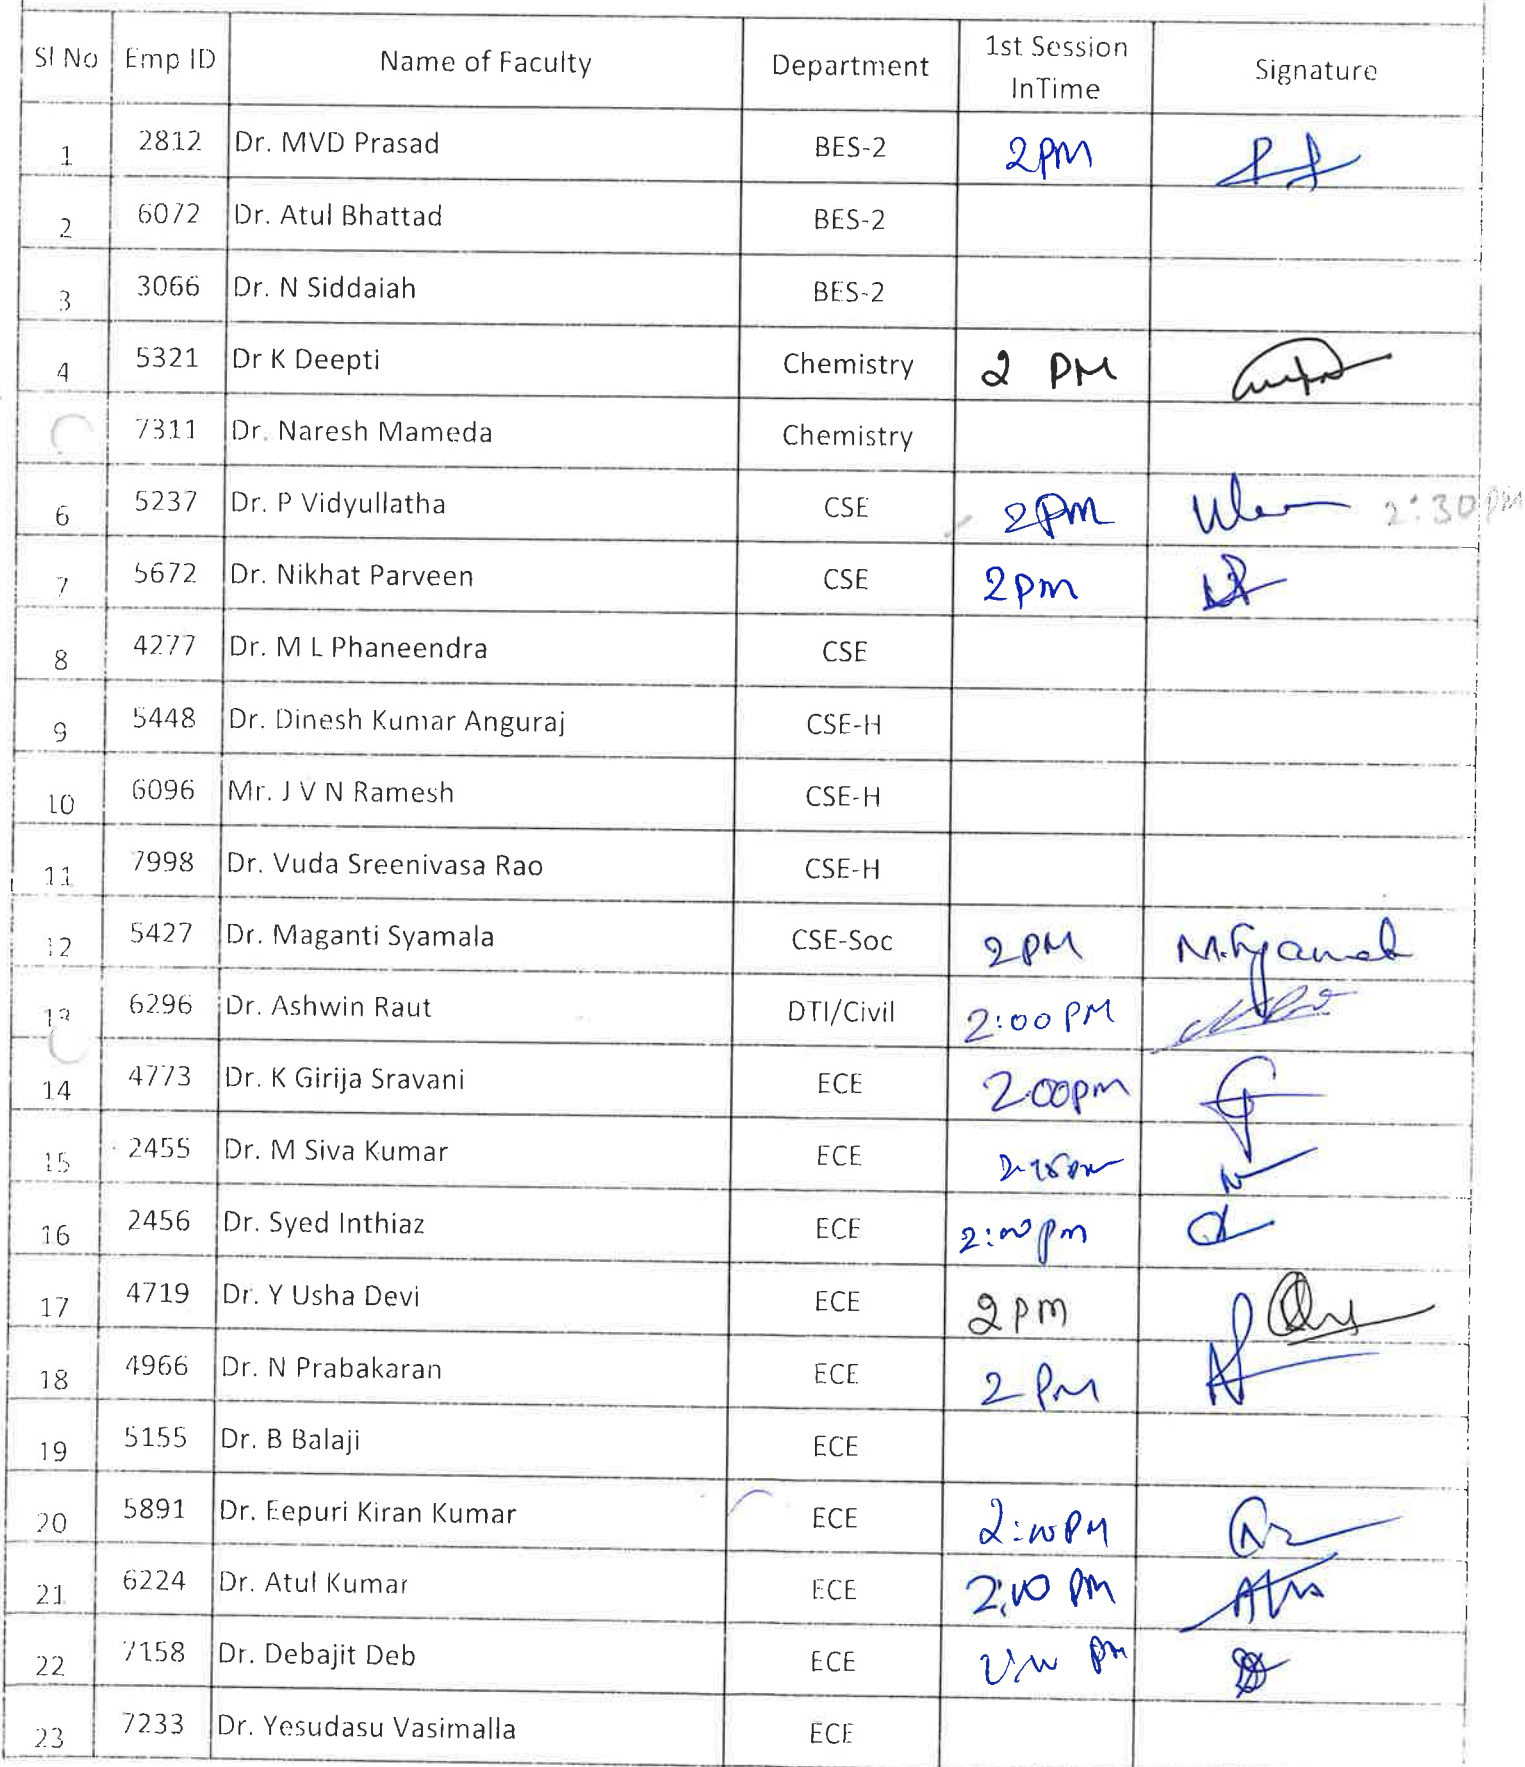 Sl No Emp ID Name of Faculty Department 1st Session InTime Signature
1 2812 Dr. MVD Prasad BES-2 2PM
2 6072 Dr. Atul Bhattad BES-2
3 3066 Dr. N Siddaiah BES-2
4 5321 Dr K Deepti Chemistry 2 PM
7311 Dr. Naresh Mameda Chemistry
6 5237 Dr. P Vidyullatha CSE 2PM 2:30PM
7 5672 Dr. Nikhat Parveen CSE 2pm
8 4277 Dr. M L Phaneendra CSE
9 5448 Dr. Dinesh Kumar Anguraj CSE-H
10 6096 Mr. J V N Ramesh CSE-H
11 7998 Dr. Vuda Sreenivasa Rao CSE-H
12 5427 Dr. Maganti Syamala CSE-Soc 2PM M.Syamala
13 6296 Dr. Ashwin Raut DTI/Civil 2:00 PM
14 4773 Dr. K Girija Sravani ECE 2.00pm
15 2455 Dr. M Siva Kumar ECE
16 2456 Dr. Syed Inthiaz ECE 2:00pm
17 4719 Dr. Y Usha Devi ECE 2pm
18 4966 Dr. N Prabakaran ECE 2 PM
19 5155 Dr. B Balaji ECE
20 5891 Dr. Eepuri Kiran Kumar ECE
21 6224 Dr. Atul Kumar ECE
22 7158 Dr. Debajit Deb ECE
23 7233 Dr. Yesudasu Vasimalla ECE